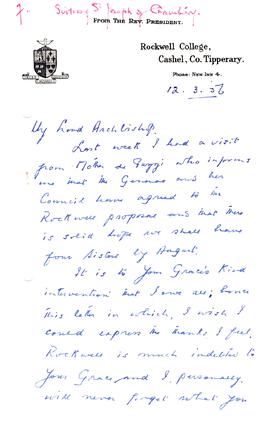 Sisters of St Joseph of
FROM THE REV. PRESIDENT.
Rockwell College,
Cashel, Co. Tipperary.
PHONE: NEW INN 4.
12. 3. 56
My Lord Archbishop,
Last week I had a visit
from Mother de who informs
me that the General and her
Council have agreed to the
Rockwell proposal and that there
is solid hope we shall have
four Sisters by August.
It is to Your Grace's kind
intervention that I owe all; hence
this letter in which, I wish I
could express the thanks I feel.
Rockwell is much indebted to
Your Grace and I, personally,
will never forget what you